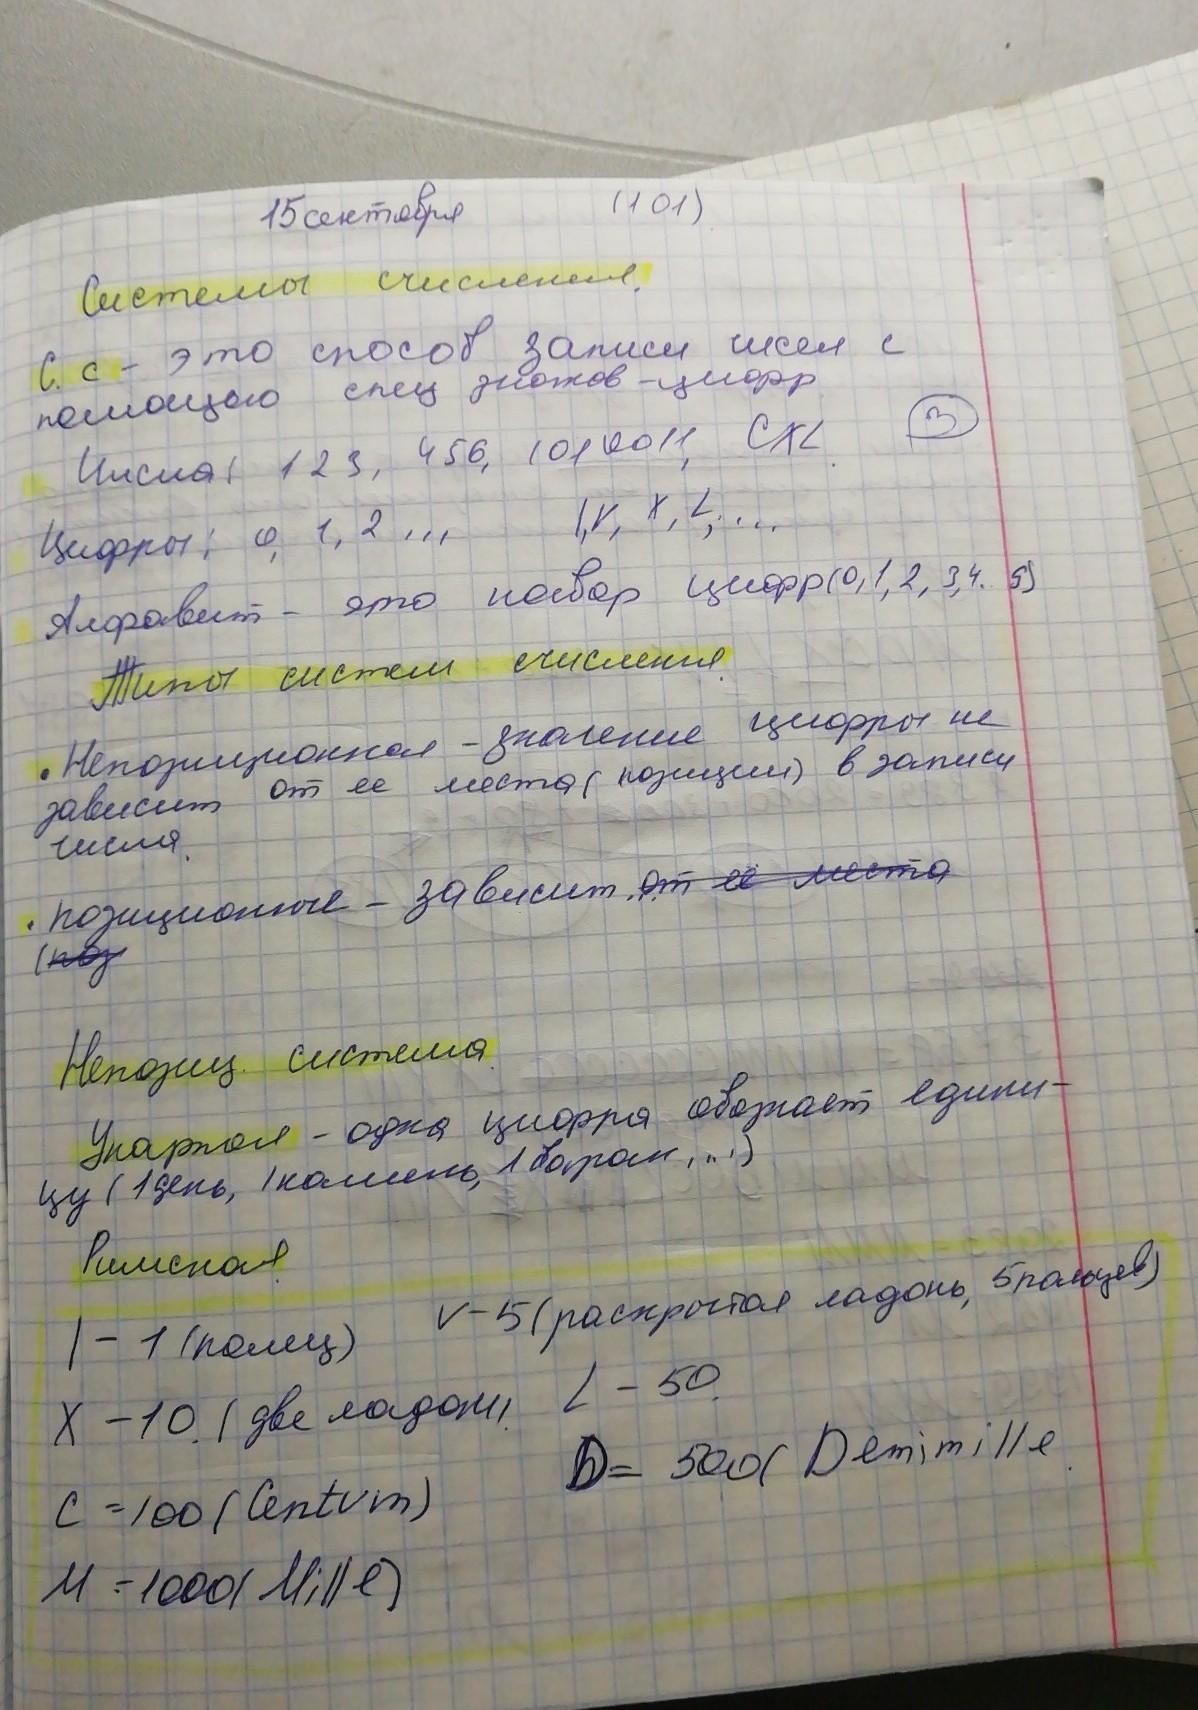 15 сентября (101)
Системы счисления.
С. с - это способ записи чисел с
помощью спец знаков - цифр
Числа: 123, 456, 1010011, CXL.
Цифры: 0, 1, 2 ... I, V, X, L, ....
Алфавит - это набор цифр (0, 1, 2, 3, 4.. 9)
Типы систем счисления.
• Непозиционная - значение цифры не
зависит от ее места (позиции) в записи
числа.
• позиционные - зависит. от её места
(поз
Непозиц. система.
Унарная - одна цифра обознает едини-
цу (1 день, 1 камень, 1 баран, ...)
Римская.
I - 1 (палец) V - 5 (раскрытая ладонь, 5 пальцев)
X - 10. (две ладони L - 50.
C = 100 (Centum) D = 500 ( Demimille.
M = 1000 ( Mille)